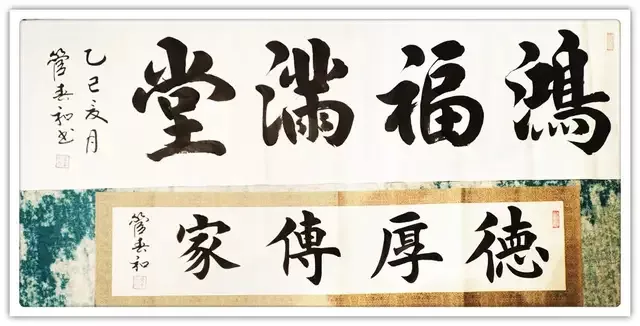 鴻福滿堂
乙巳夏月
管春和书
德厚傳家
管春和